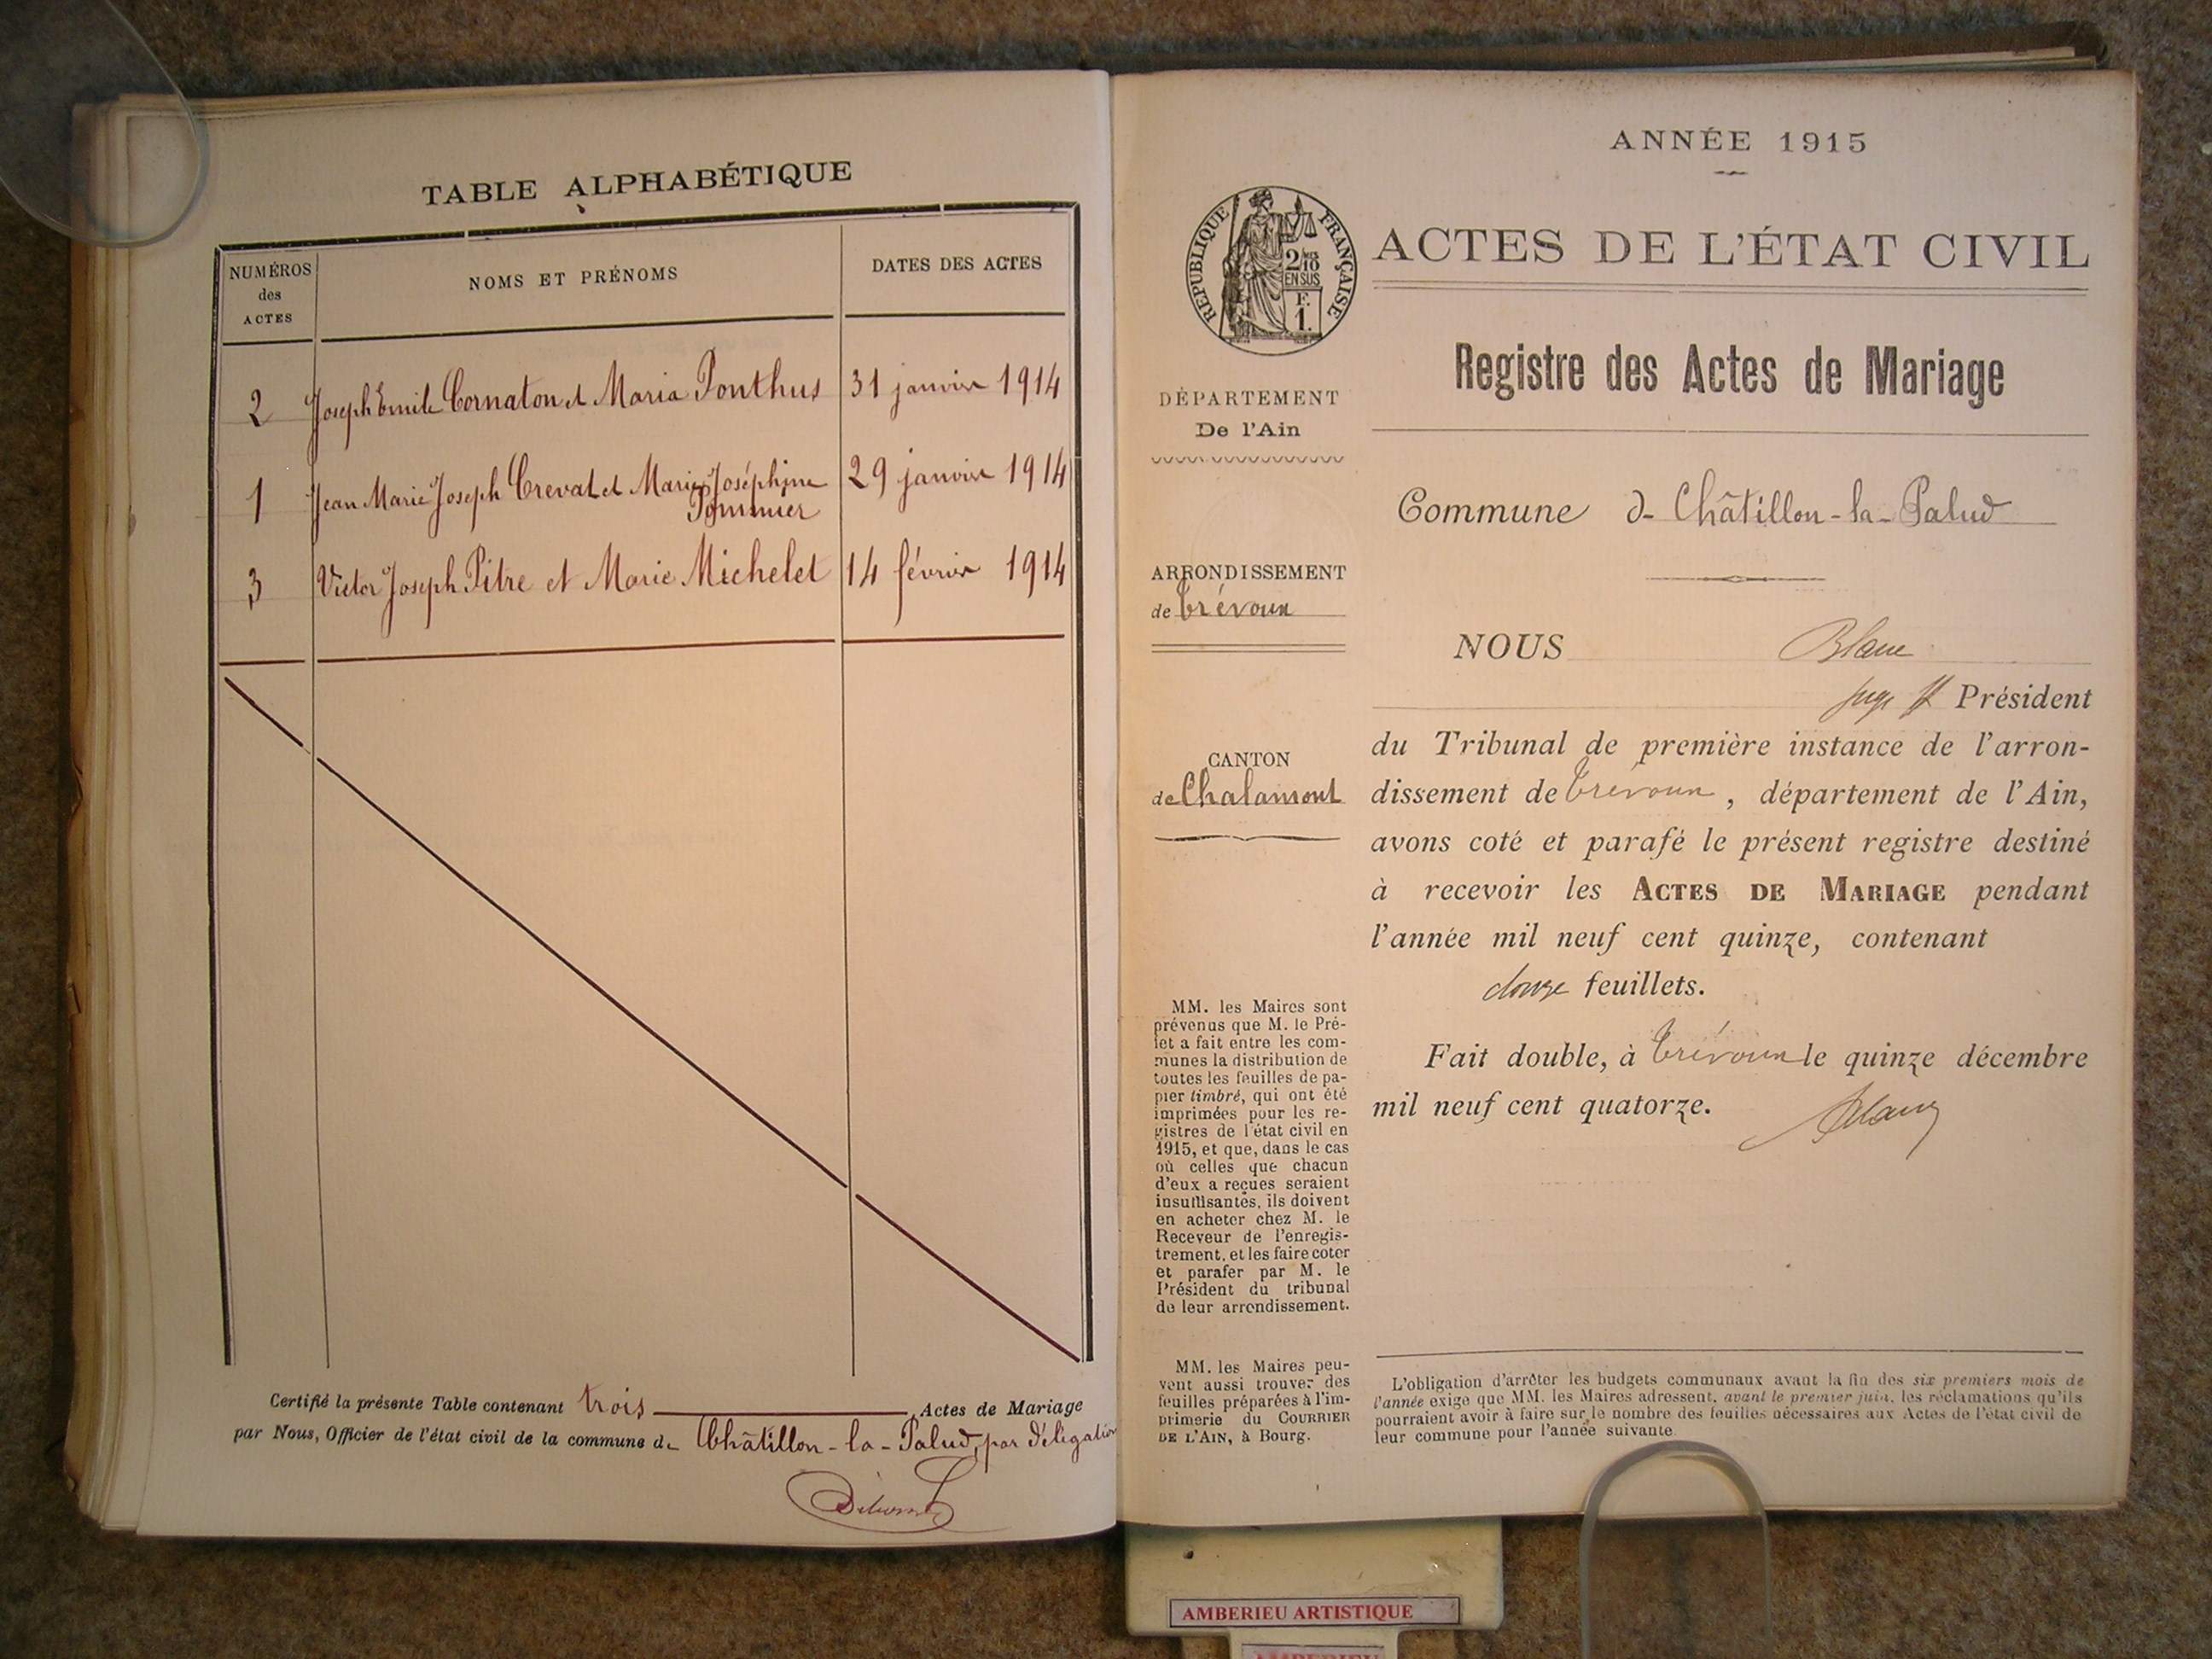 TABLE ALPHABÉTIQUE
NUMÉROS
des
ACTES
NOMS ET PRÉNOMS
DATES DES ACTES
2 Joseph Emile Cornaton et Maria Ponthus 31 janvier 1914
1 Jean Marie Joseph Crevat et Marie Joséphine 29 janvier 1914
Pommier
3 Victor Joseph Pitre et Marie Michelet 14 février 1914
Certifié la présente Table contenant trois Actes de Mariage
par Nous, Officier de l'état civil de la commune de Châtillon-la-Palud, par délégation
ANNÉE 1915
RÉPUBLIQUE FRANÇAISE
2/10
EN SUS
F.
1.
ACTES DE L'ÉTAT CIVIL
Registre des Actes de Mariage
DÉPARTEMENT
De l'Ain
Commune de Châtillon-la-Palud
ARRONDISSEMENT
de Trévoux
NOUS Blanc
juge Président
du Tribunal de première instance de l'arron-
dissement de Trévoux, département de l'Ain,
avons coté et parafé le présent registre destiné
à recevoir les ACTES DE MARIAGE pendant
l'année mil neuf cent quinze, contenant
douze feuillets.
Fait double, à Trévoux le quinze décembre
mil neuf cent quatorze.
Blanc
CANTON
de Chalamont
MM. les Maires sont
prévenus que M. le Pré-
fet a fait entre les com-
munes la distribution de
toutes les feuilles de pa-
pier timbré, qui ont été
imprimées pour les re-
gistres de l'état civil en
1915, et que, dans le cas
où celles que chacun
d'eux a reçues seraient
insuffisantes, ils doivent
en acheter chez M. le
Receveur de l'enregis-
trement, et les faire coter
et parafer par M. le
Président du tribunal
de leur arrondissement.
MM. les Maires peu-
vent aussi trouver des
feuilles préparées à l'im-
primerie du COURRIER
DE L'AIN, à Bourg.
L'obligation d'arrêter les budgets communaux avant la fin des six premiers mois de
l'année exige que MM. les Maires adressent, avant le premier juin, les réclamations qu'ils
pourraient avoir à faire sur le nombre des feuilles nécessaires aux Actes de l'état civil de
leur commune pour l'année suivante.
AMBERIEU ARTISTIQUE
AMBERIEU